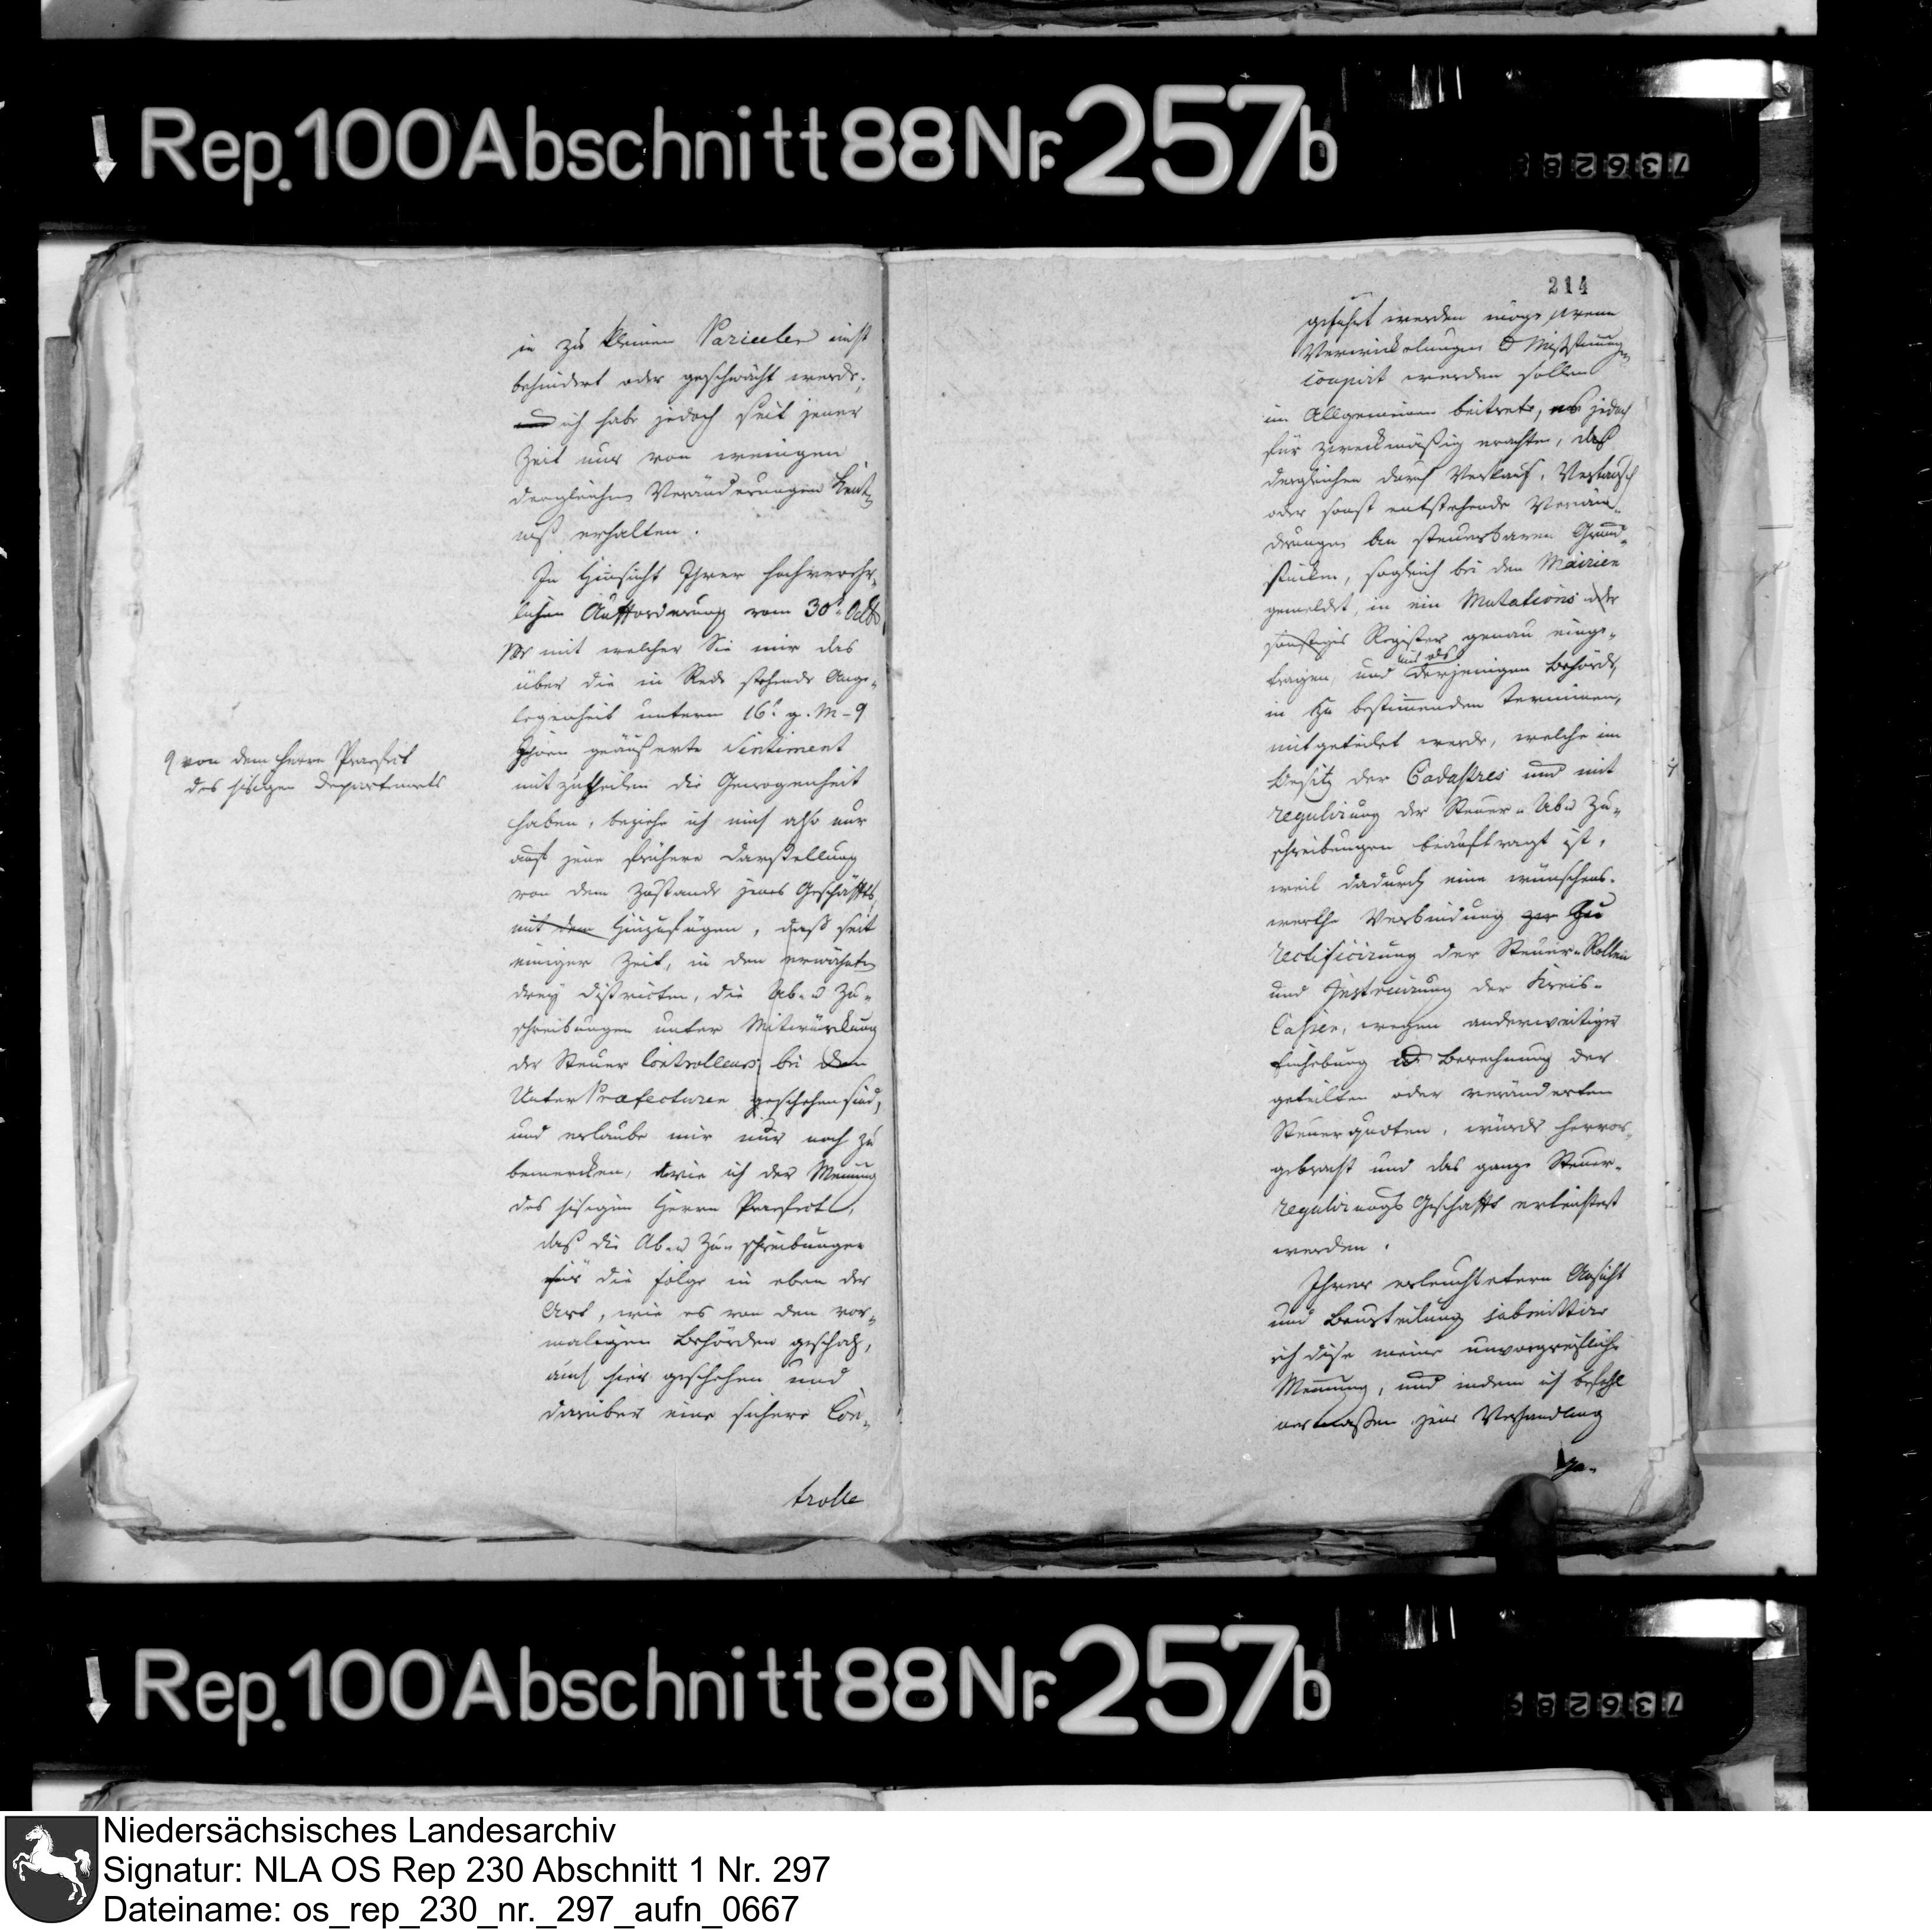 Rep. 100 Abschnitt 88 Nr. 257b
73628
in zu kleinen Parcelen nicht
behindert oder geschwächt werde;
ich habe jedoch seit jener
Zeit nur von wenigen
dergleichen Veränderungen Kent-
niß erhalten.
In Hinsicht Ihrer hochverehr-
lichen Aufforderung vom 30t. Octb.
mit welcher Sie mir das
über die in Rede stehende Ange-
legenheit unterm 16t. g. M.
geäußerte Sentiment
mitzutheilen die Gewogenheit
haben, beziehe ich mich also nur
auf jene frühere Darstellung
von dem Zustande jenes Geschäffts,
mit dem Hinzufügen, daß seit
einiger Zeit, in den erwähnten
drey Districten, die Ab- u Zu-
schreibungen unter Mitwürckung
der Steuer Controlleurs bei den
Unter Præfecturen geschehen sind,
und erlaube mir nur noch zu
bemercken, wie ich der Meinung
des hiesigen Herrn Praefect,
daß die Ab- u Zuschreibungen
für die Folge in eben der
Art, wie es von den vor-
maligen Behörden geschah,
auch hier geschehen und
darüber eine sichere Con-
trolle
von dem Herrn Praefect
des hiesigen Departements
214
geführt werden möge, wenn
Verwickelungen u Mißstimmungen
coupirt werden sollen
im Allgemeinen beitrete, es jedoch
für zweckmäßig erachte, daß
dergleichen durch Verkauf, Vertausch
oder sonst entstehende Verän-
derungen an steuerbaren Grund-
stücken, sogleich bei den Mairien
gemeldet, in ein Mutations oder
sonstiges Register genau einge-
tragen, und derjenigen Behörde,
in zu bestimmenden Terminen,
mitgeteilet werde, welche im
Besitz der Cadastres und mit
regulirung der Steuer- Ab u Zu-
schreibungen beauftragt ist,
weil dadurch eine wünschens-
werthe Verbindung zur
rectificirung der Steuer-Rollen
und Instruirung der Kreis-
Cassen, wegen anderweitiger
Einhebung u Berechnung der
geteilten oder veränderten
Steuerquoten, würde hervor-
gebracht und das ganze Steuer-
regulirungs Geschäfft erleichtert
werden.
Ihrer erleuchtetern Ansicht
und Beurteilung submittire
ich diese meine unvorgreifliche
Meinung, und indem ich befohl
nermaßen jene Verhandlung
Rep. 100 Abschnitt 88 Nr. 257b
73628
Niedersächsisches Landesarchiv
Signatur: NLA OS Rep 230 Abschnitt 1 Nr. 297
Dateiname: os_rep_230_nr._297_aufn_0667